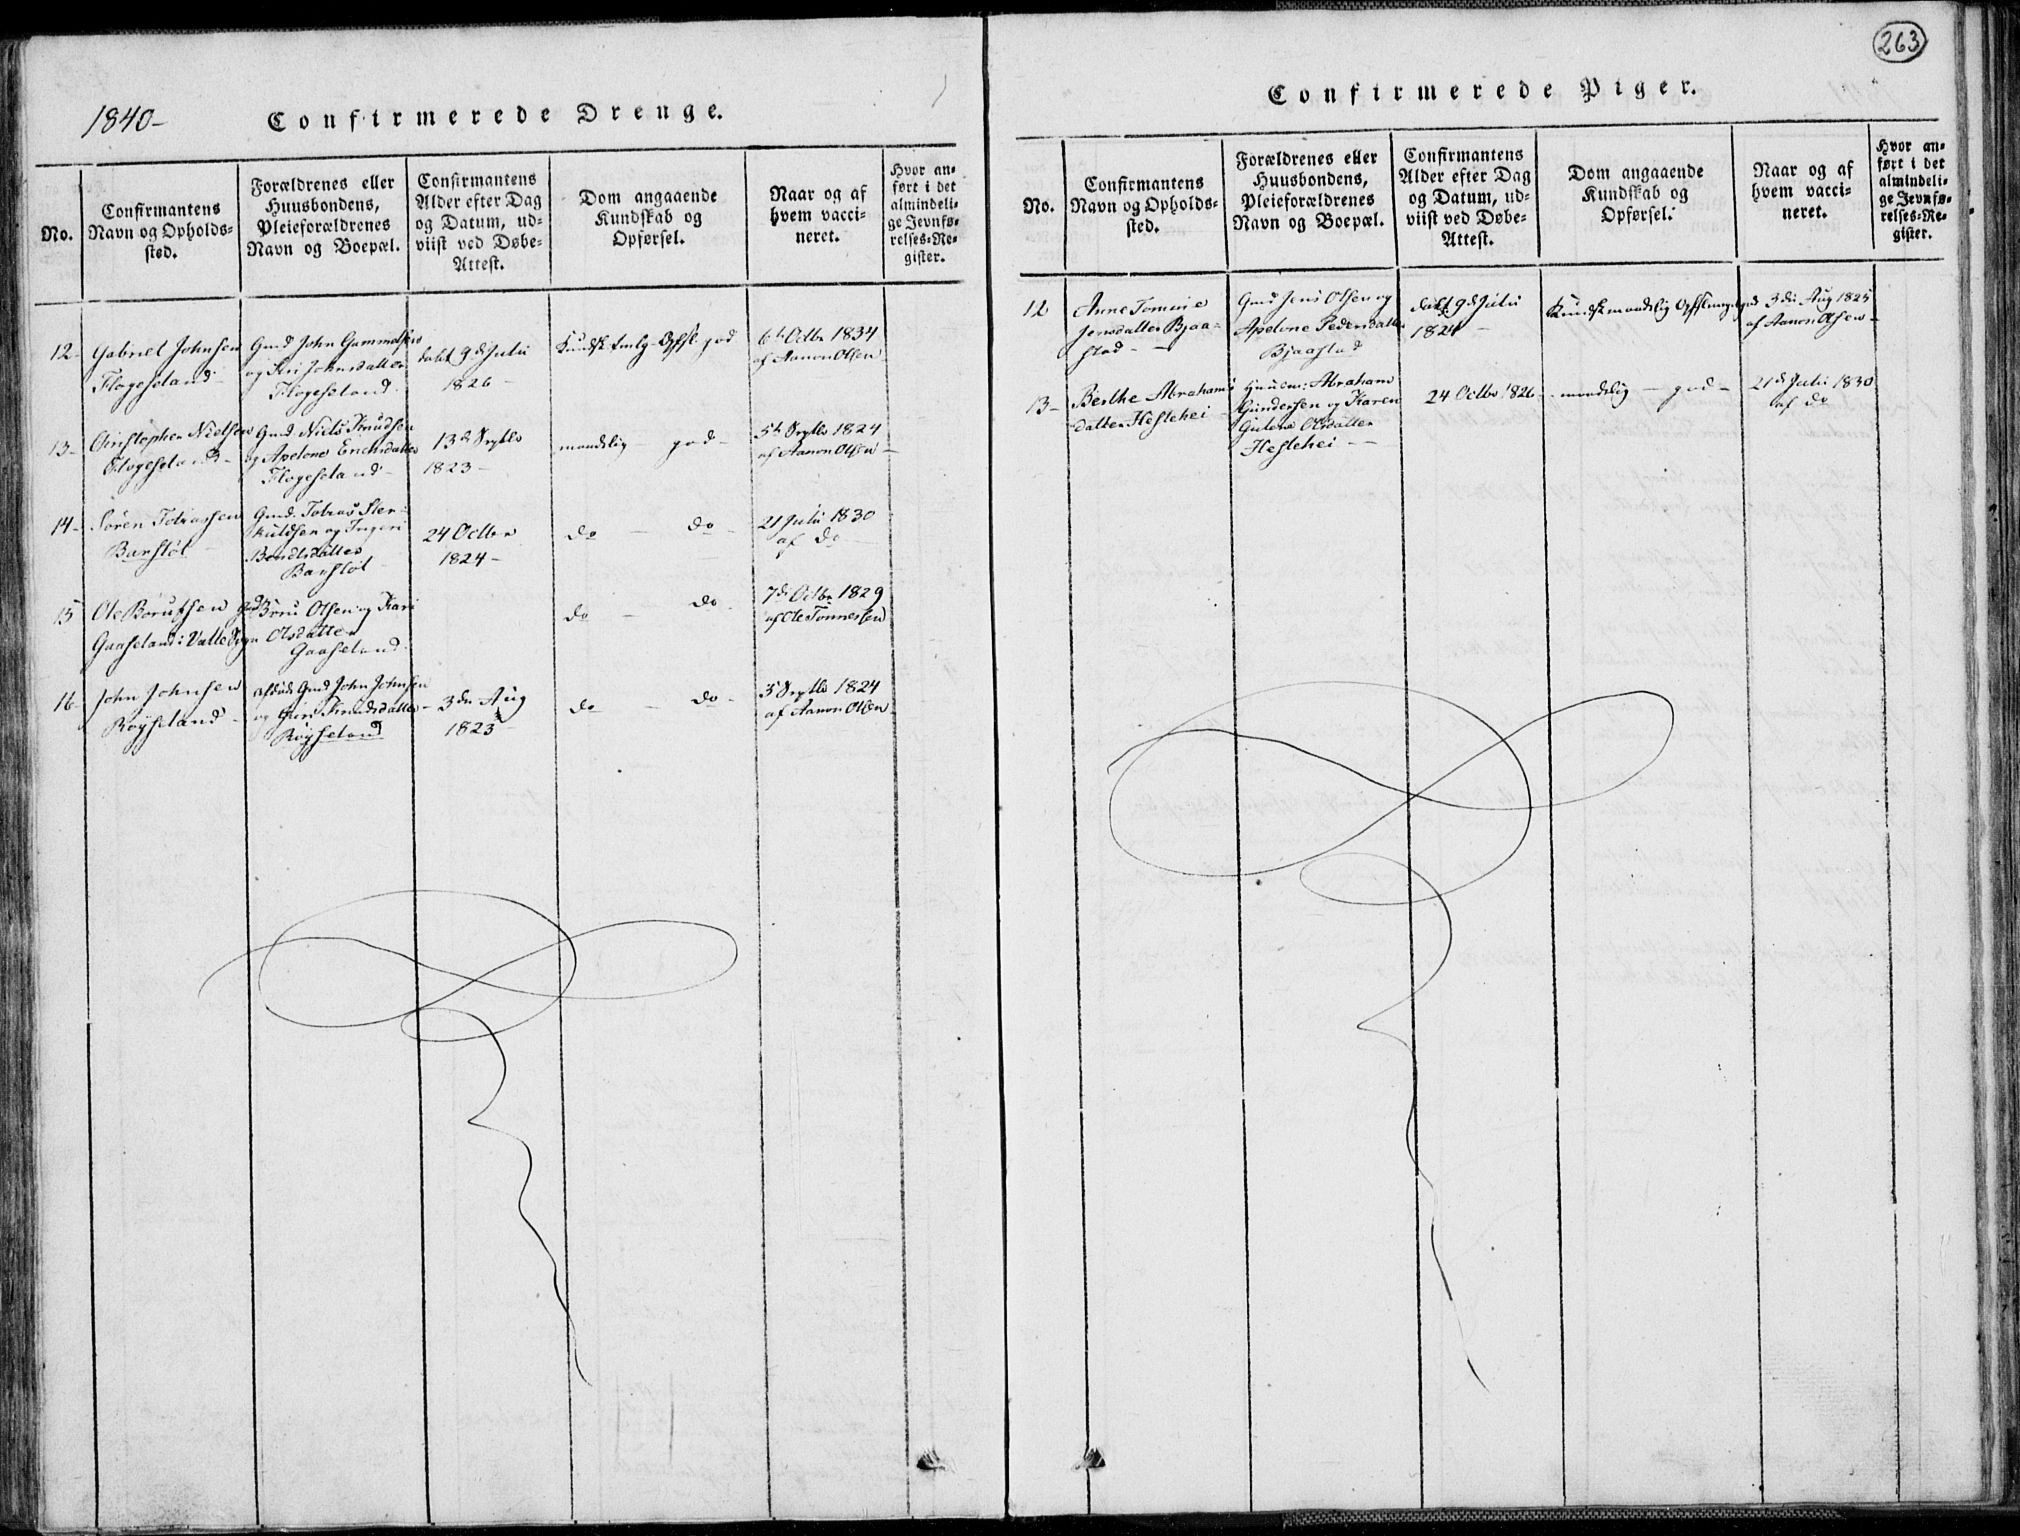 1840-
Confirmerede Drenge.
No.
Confirmantens
Navn og Opholds-
sted.
Forældrenes eller
Huusbondens,
Pleieforældrenes
Navn og Boepæl.
Confirmantens
Alder efter Dag
og Datum, ud-
viist ved Døbe-
Attest.
Dom angaaende
Kundskab og
Opførsel.
Naar og af
hvem vacci-
neret.
Hvor an-
ført i det
almindeli-
ge Jevnfø-
relses-Re-
gister.
12-
Gabriel Johnsen
Flageseland-
Gmd John Gummelsen
og Siri Johnsdatter
Flageseland-
døbt 9de Julii
1826-
Kundsk. Opfsl. god
6te Octbr 1834
af Aanon Olsen
13-
Christopher Nielsen
Flogeseland-
Gmd Niels Knudsen
og Apelone Erichsdatter
Flogeseland-
13de Septbr
1823-
maadelig - god-
5te Septbr 1824
af Aanon Olsen-
14-
Søren Tobiassen
Banstøl-
Gmd. Tobias Ster-
kuldsen og Ingeri
Bendtsdatter
Banstøl-
24 Octbr
1824-
do - do-
21 Julii 1830
af do-
15
Ole Børufsen
Gaaseland i Valle Sogn
Gmd Børu Olsen og Kari
Olsdatter
Gaaseland-
do - do-
7de Octbr 1829
af Ole Tønnessen
16-
John Johnsen
Røyseland-
afdøde Gmd John Johnsen
og Guri Knudsdatter-
Røyseland
3die Aug
1823-
do - do-
5 Septbr 1824
af Aanon Olsen
263
Confirmerede Piger.
No.
Confirmantens
Navn og Opholds-
sted.
Forældrenes eller
Huusbondens,
Pleieforældrenes
Navn og Boepæl.
Confirmantens
Alder efter Dag
og Datum, ud-
viist ved Døbe-
Attest.
Dom angaaende
Kundskab og
Opførsel.
Naar og af
hvem vacci-
neret.
Hvor an-
ført i det
almindeli-
ge Jevnfø-
relses-Re-
gister.
12
Anne Tomine
Jensdatter Bjaa-
stad-
Gmd Jens Olsen og
Apelone Pedersdatter
Bjaastad
døbt 9de Julii
1824-
Kundsk maadelig Opfsl god
3die Aug 1825
af Aanon Olsen-
13-
Berthe Abrahams
datter Heslehei-
Huusm: Abraham
Gundersen og Karen
Gulene Olsdatter
Heslehei-
24 Octbr 1826-
maadelig - god-
21de Julii 1830
af do